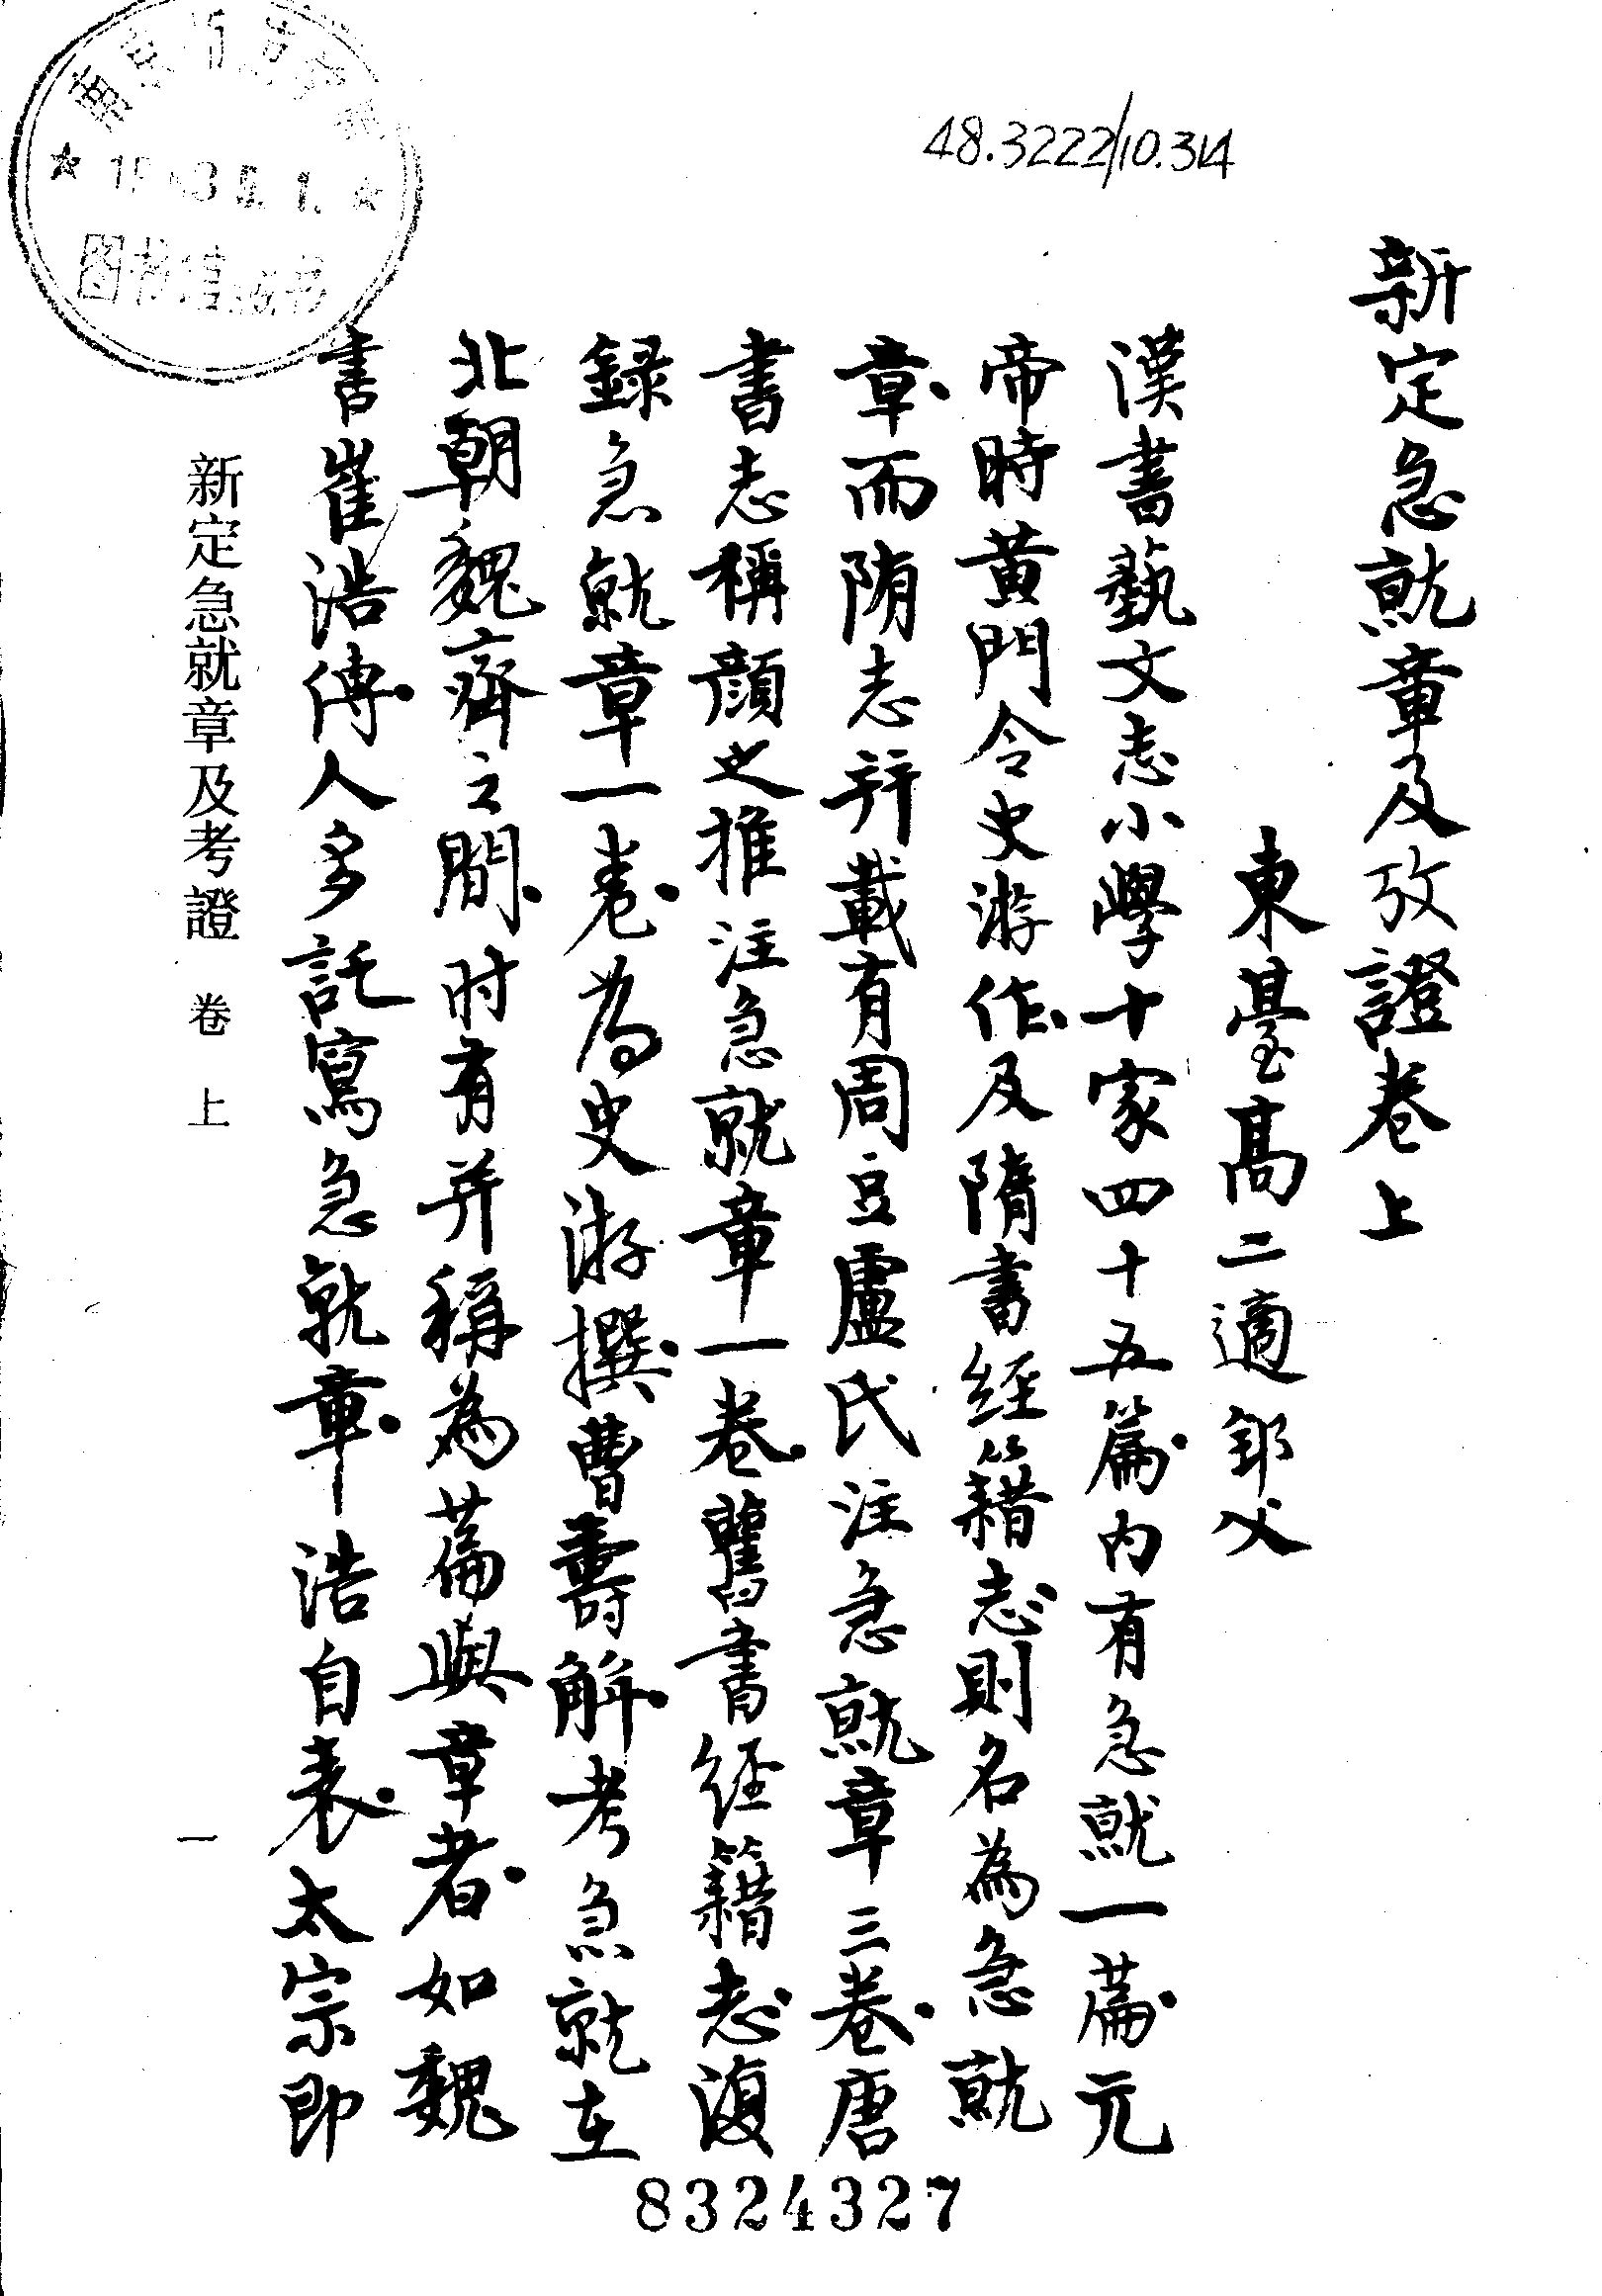 48.3222/10.314
新定急就章及攷證卷上
東臺高二適 父
漢書藝文志小學十家四十五篇内有急就一篇元
帝時黃門令史游作及隋書經籍志則名為急就
章而隋志并載有周豆盧氏注急就章三卷唐
書志稱顏之推注急就章一卷舊書經籍志復
録急就章一卷為史游撰曹壽解考急就在
北朝魏齊之間时有并稱為篇與章者如魏
書崔浩傳人多託寫急就章浩自表太宗即
新定急就章及考證 卷上
一
8324327
图书馆藏书